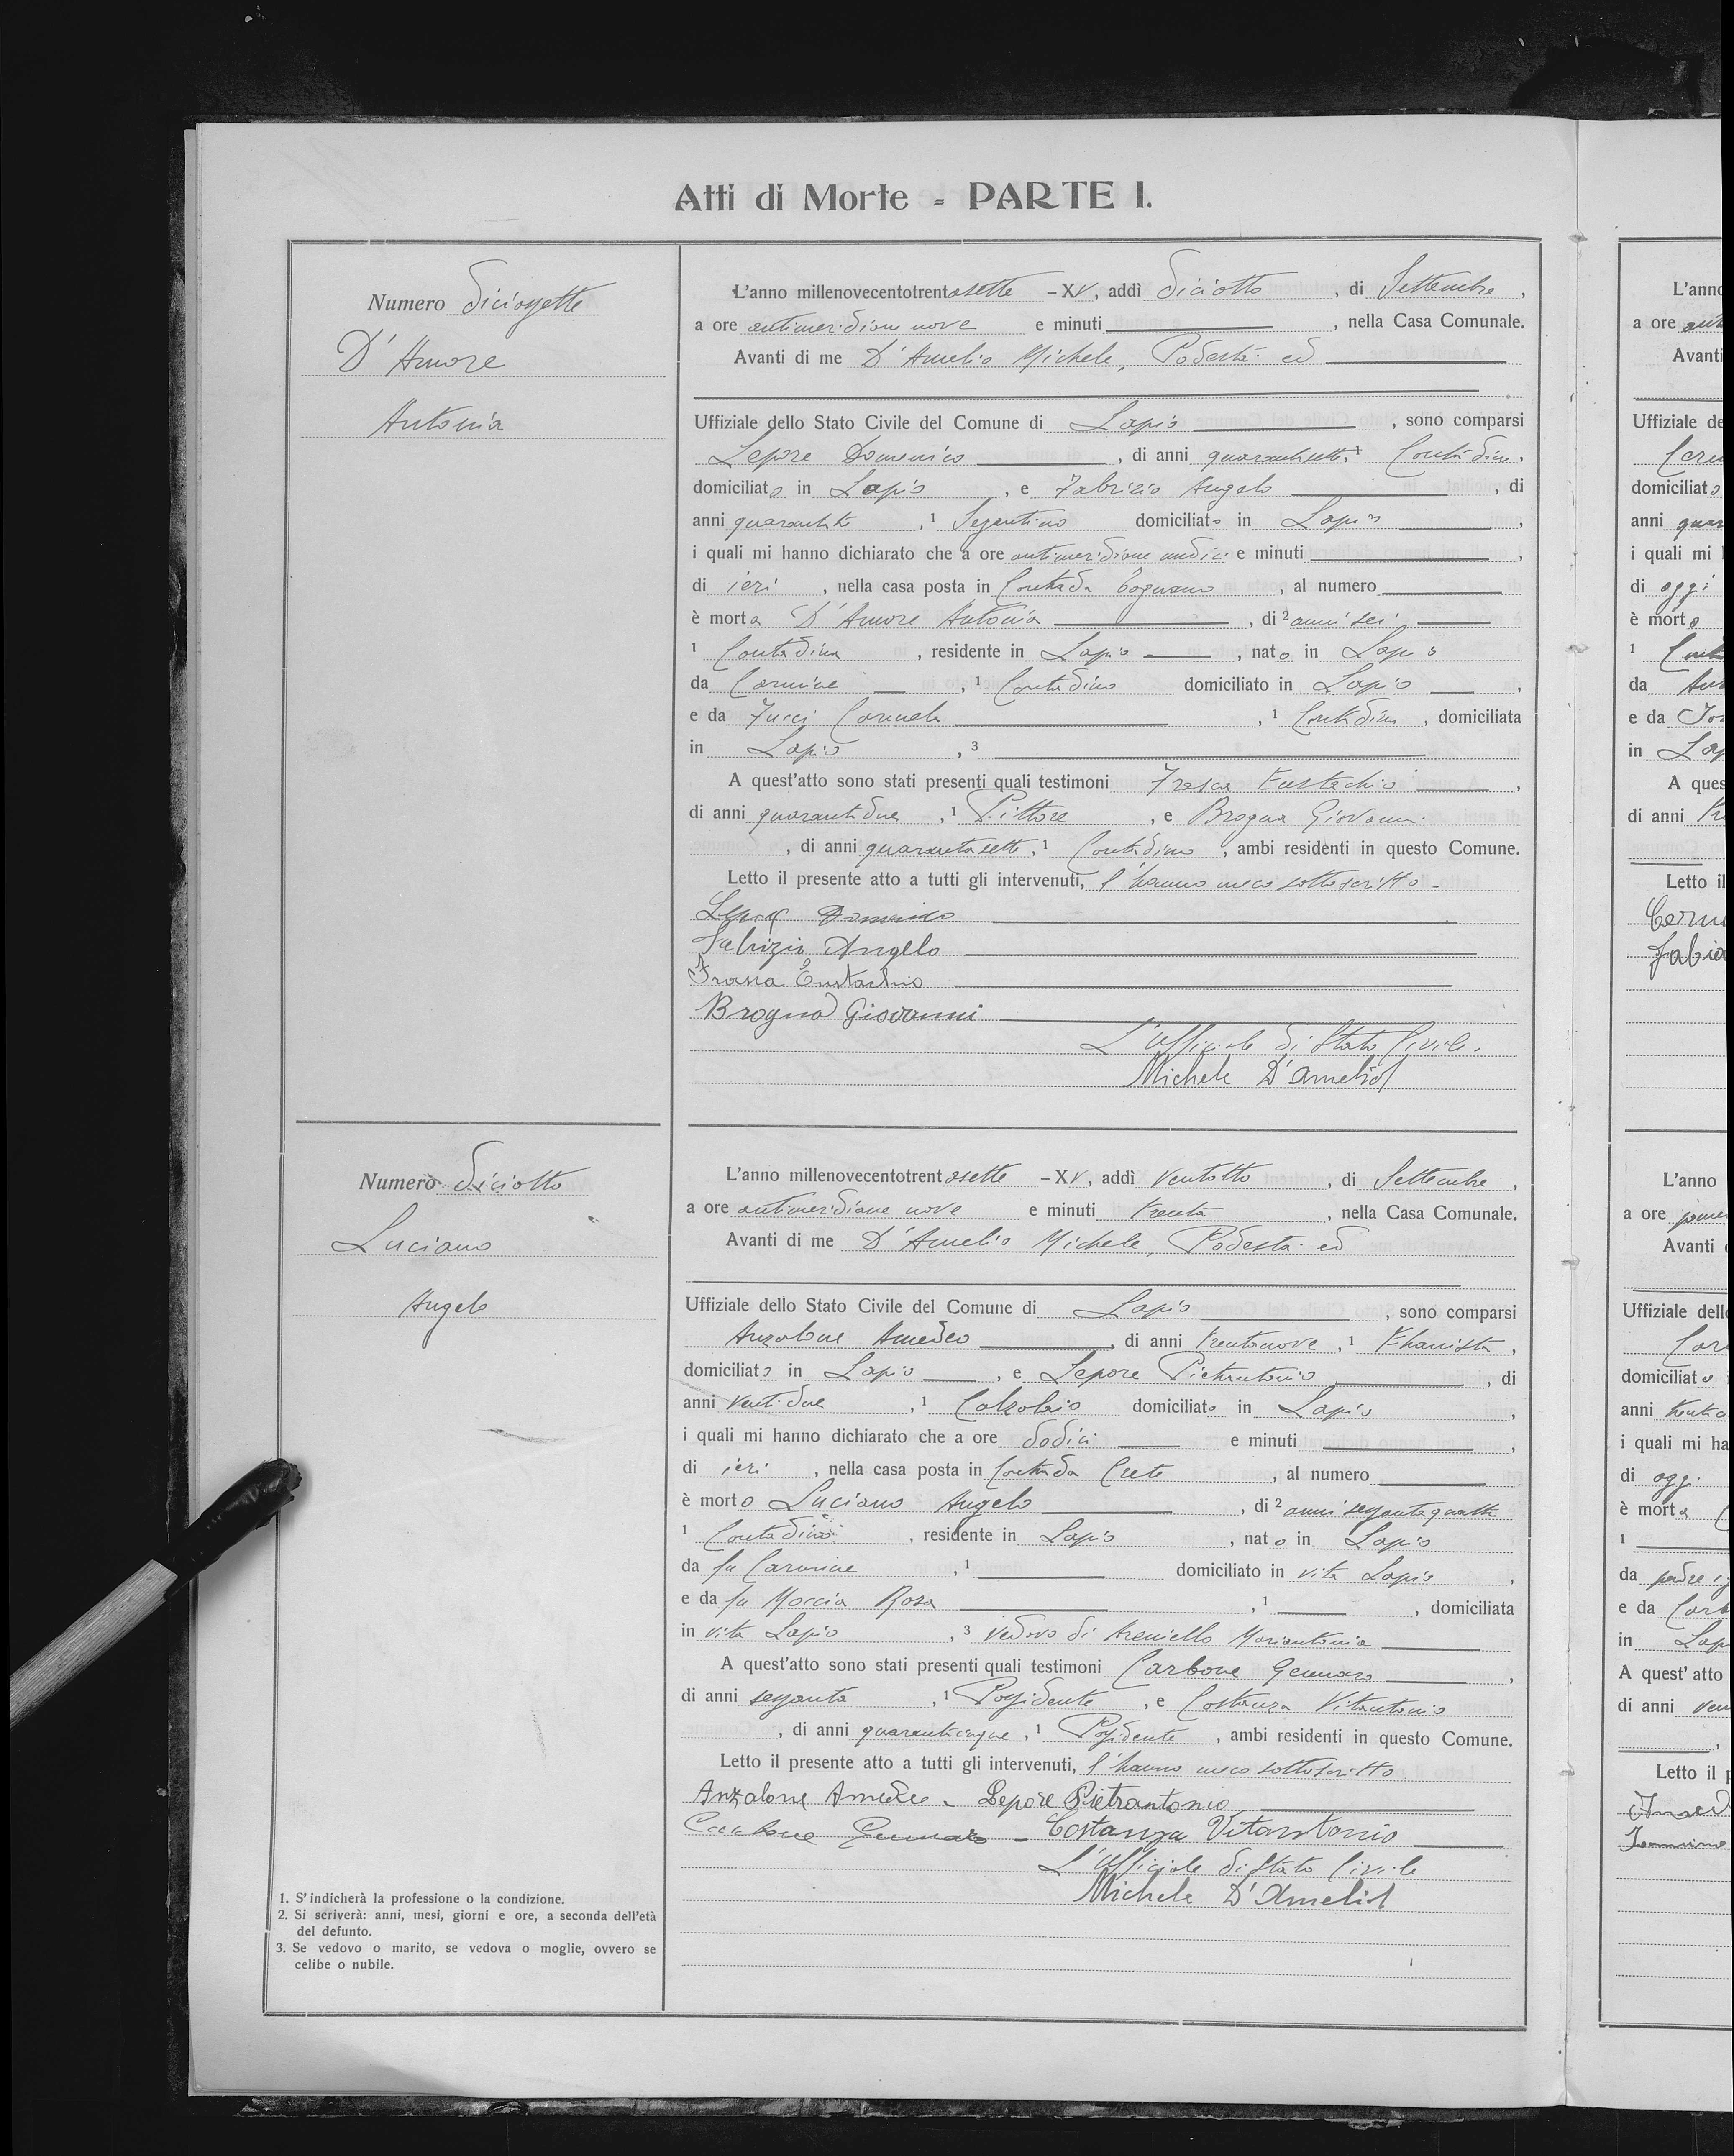 Atti di Morte - PARTE I.
Numero Diciassette
D'Amore
Antonia
L'anno millenovecentotrentasette - XV, addì Diciotto, di Settembre,
a ore antimeridiane nove e minuti , nella Casa Comunale.
Avanti di me D'Amelio Michele, Podestà ed
Uffiziale dello Stato Civile del Comune di Lapio, sono comparsi
Lepore Domenico, di anni quarantasette, 1 Contadino,
domiciliato in Lapio, e Fabrizio Angelo, di
anni , 1 domiciliato in Lapio,
i quali mi hanno dichiarato che a ore antimeridiane undici e minuti ,
di ieri, nella casa posta in Contrada Cognano, al numero
è morta D'Amore Antonia, di 2 anni sei
1 Contadina, residente in Lapio, nata in Lapio
da Carmine, 1 Contadino domiciliato in Lapio,
e da Carmela, 1 Contadina, domiciliata
in Lapio, 3
A quest'atto sono stati presenti quali testimoni Frasca Eustachio,
di anni quarantadue, 1 Pittore, e Brogna Giovanni
, di anni quarantasette, 1 Contadino, ambi residenti in questo Comune.
Letto il presente atto a tutti gli intervenuti, l'hanno meco sottoscritto.
Lepore Domenico
Fabrizio Angelo
Frasca Eustachio
Brogna Giovanni
L'Ufficiale di Stato Civile.
Michele D'Amelio
Numero Diciotto
Luciano
Angelo
L'anno millenovecentotrentasette - XV, addì Ventotto, di Settembre,
a ore antimeridiane nove e minuti trenta, nella Casa Comunale.
Avanti di me D'Amelio Michele, Podestà ed
Uffiziale dello Stato Civile del Comune di Lapio, sono comparsi
Anzalone Amedeo, di anni trentanove, 1 ,
domiciliato in Lapio, e Lepore Pietrantonio, di
anni ventidue, 1 Calzolaio domiciliato in Lapio,
i quali mi hanno dichiarato che a ore dodici e minuti ,
di ieri, nella casa posta in Contrada Crete, al numero
è morto Luciano Angelo, di 2 anni sessantaquattro
1 Contadino, residente in Lapio, nato in Lapio
da fu Carmine, 1 domiciliato in vita Lapio,
e da fu Moccia Rosa, 1 , domiciliata
in vita Lapio, 3 vedovo di Areniello Mariantonia
A quest'atto sono stati presenti quali testimoni Carbone Gennaro,
di anni sessanta, 1 Possidente, e Costanza Vitantonio
, di anni quarantacinque, 1 Possidente, ambi residenti in questo Comune.
Letto il presente atto a tutti gli intervenuti, l'hanno meco sottoscritto
Anzalone Amedeo - Lepore Pietrantonio
Carbone Gennaro - Costanza Vitantonio
L'Ufficiale di Stato Civile
Michele D'Amelio
1. S'indicherà la professione o la condizione.
2. Si scriverà: anni, mesi, giorni e ore, a seconda dell'età
del defunto.
3. Se vedovo o marito, se vedova o moglie, ovvero se
celibe o nubile.
L'anno
a ore
Avanti
Uffiziale de
domiciliato
anni
i quali mi
di oggi
è morto
1
da
e da
in
A ques
di anni
Letto il
L'anno
a ore
Avanti
Uffiziale dell
domiciliato
anni
i quali mi ha
di oggi
è morta
1
da
e da
in
A quest' atto
di anni
Letto il p